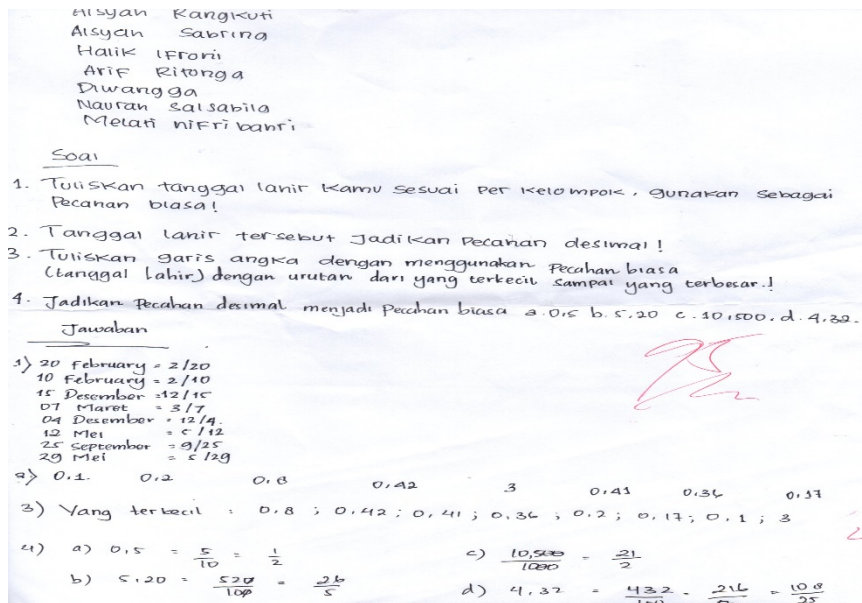 Aisyah Rangkuti
Aisyah Sabrina
Halik
Arif Ritonga
Diwangga
Nauran Salsabila
Melati
Soal
1. Tuliskan tanggal lahir kamu sesuai Per Kelompok, gunakan sebagai
Pecahan biasa!
2. Tanggal lahir tersebut Jadikan Pecahan desimal!
3. Tuliskan garis angka dengan menggunakan Pecahan biasa
(tanggal Lahir) dengan urutan dari yang terkecil sampai yang terbesar.!
4. Jadikan Pecahan desimal menjadi Pecahan biasa a. 0,5 b. 5,20 c. 10,500. d. 4,32.
Jawaban
1) 20 February = 2/20
10 February = 2/10
15 Desember = 12/15
07 Maret = 3/7
04 Desember = 12/4.
12 Mei = 5/12
25 September = 9/25
29 Mei = 5/29
2) 0,1. 0,2 0,8 0,42 3 0,41 0,36 0,17
3) Yang terkecil : 0,8 ; 0,42 ; 0,41 ; 0,36 ; 0,2 ; 0,17 ; 0,1 ; 3
4) a) 0,5 = 5/10 = 1/2 c) 10,500/1000 = 21/2
b) 5,20 = 520/100 = 26/5 d) 4,32 = 432/100 = 216 = 108/25
95